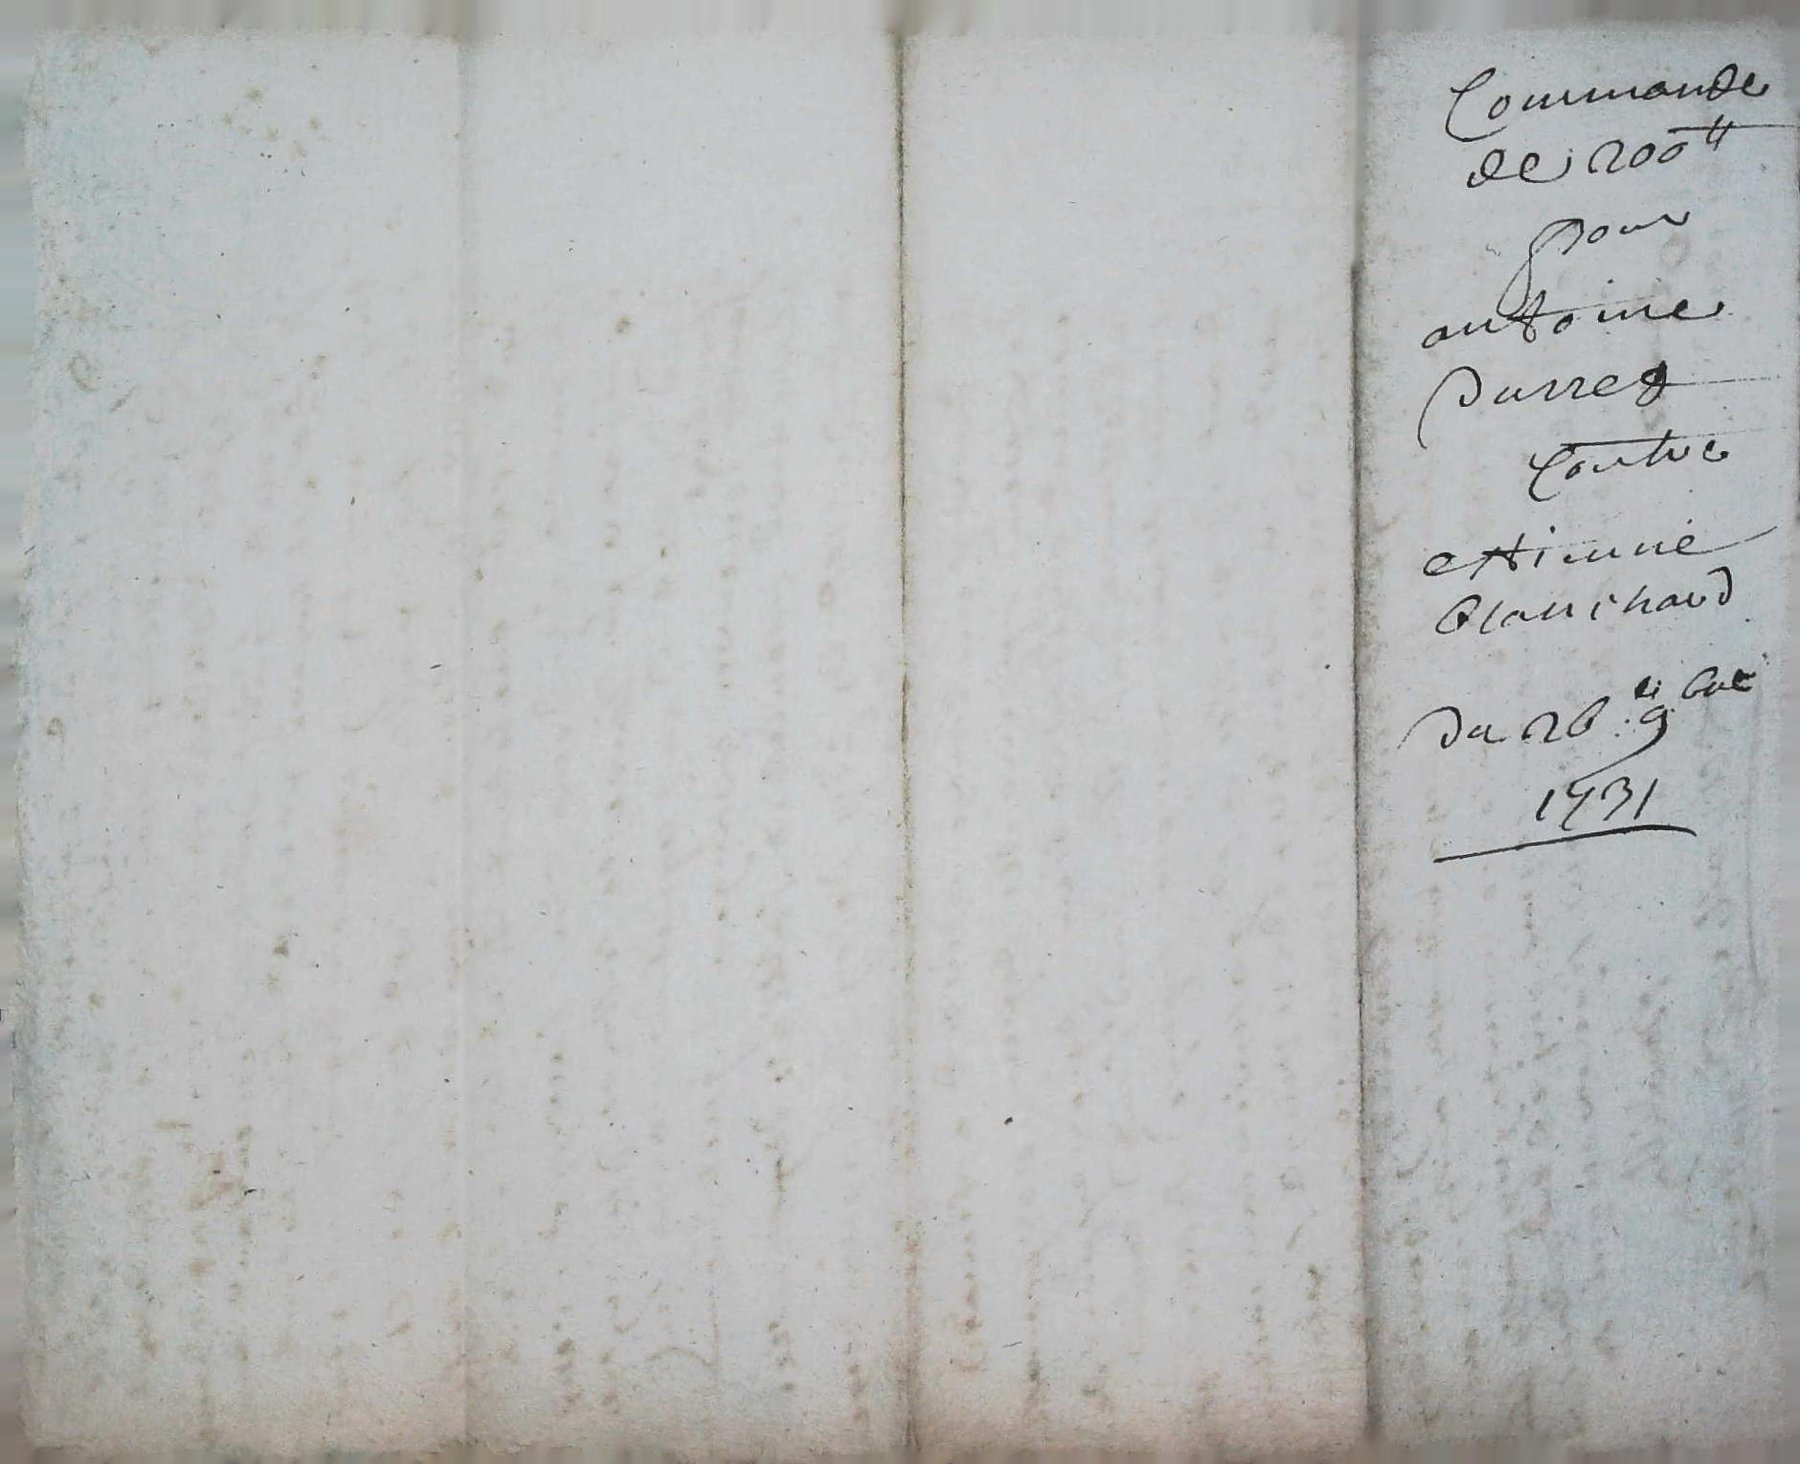 Commande
de 200ᵗᵗ
pour
antoine
Durret
Contre
ettienne
blanchard
Du 26.ᵉ 9ᵇʳᵉ
1731